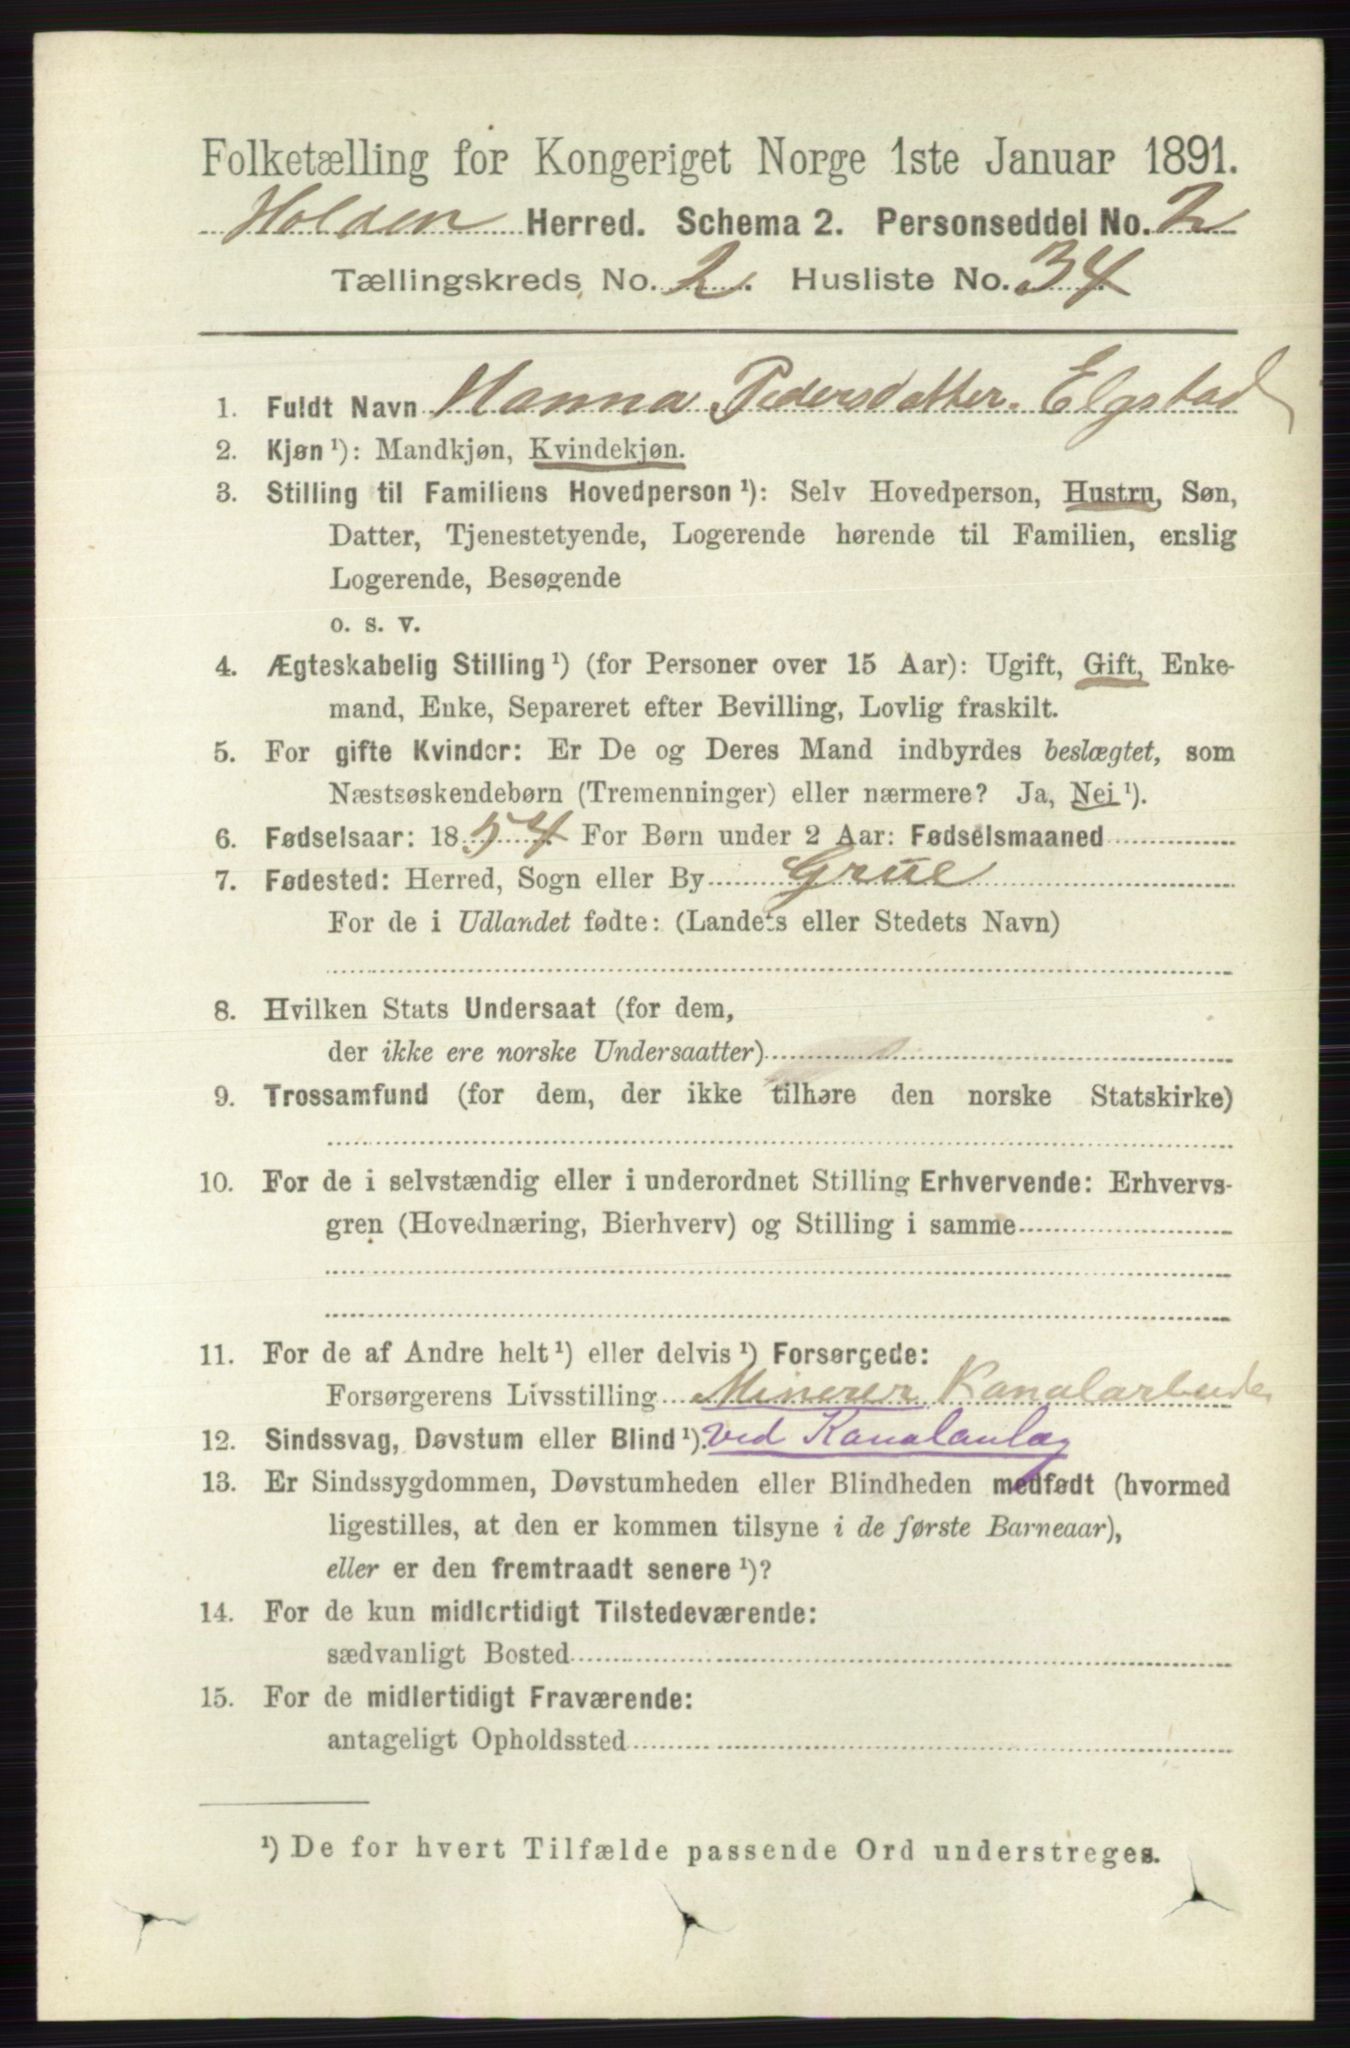 Folketælling for Kongeriget Norge 1ste Januar 1891.
Holden Herred. Schema 2. Personseddel No. 2
Tællingskreds No. 2. Husliste No. 34
1. Fuldt Navn Hanna Pedersdatter Elgstad
2. Kjøn ¹): Mandkjøn, Kvindekjøn.
3. Stilling til Familiens Hovedperson ¹): Selv Hovedperson, Hustru, Søn,
Datter, Tjenestetyende, Logerende hørende til Familien, enslig
Logerende, Besøgende
o. s. v.
4. Ægteskabelig Stilling ¹) (for Personer over 15 Aar): Ugift, Gift, Enke-
mand, Enke, Separeret efter Bevilling, Lovlig fraskilt.
5. For gifte Kvinder: Er De og Deres Mand indbyrdes beslægtet, som
Næstsøskendebørn (Tremenninger) eller nærmere? Ja, Nei ¹).
6. Fødselsaar: 1854 For Børn under 2 Aar: Fødselsmaaned
7. Fødested: Herred, Sogn eller By Grue
For de i Udlandet fødte: (Landets eller Stedets Navn)
8. Hvilken Stats Undersaat (for dem,
der ikke ere norske Undersaatter)
9. Trossamfund (for dem, der ikke tilhøre den norske Statskirke)
10. For de i selvstændig eller i underordnet Stilling Erhvervende: Erhvervs-
gren (Hovednæring, Bierhverv) og Stilling i samme
11. For de af Andre helt ¹) eller delvis ¹) Forsørgede:
Forsørgerens Livsstilling Minerer Kanalarbeider
12. Sindssvag, Døvstum eller Blind ¹). ved Kanalanlæg
13. Er Sindssygdommen, Døvstumheden eller Blindheden medfødt (hvormed
ligestilles, at den er kommen tilsyne i de første Barneaar),
eller er den fremtraadt senere ¹)?
14. For de kun midlertidigt Tilstedeværende:
sædvanligt Bosted
15. For de midlertidigt Fraværende:
antageligt Opholdssted
¹) De for hvert Tilfælde passende Ord understreges.